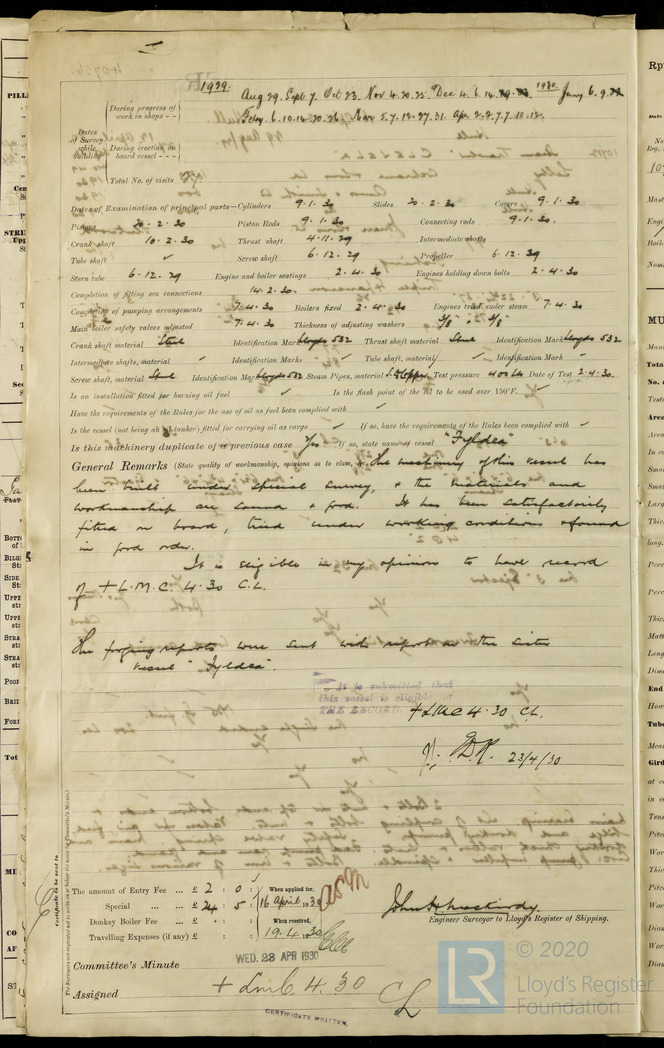 1929. Aug 29. Sept 7. Oct 23. Nov 4. 20. 25. Dec 4. 6. 14. 1930. Jany 6. 9.
During progress of work in shops - -
Feby. 6. 10. 14. 20. 26. Mar 5. 7. 12. 27. 31. Apr 2. 7. 10. 12.
Dates of Survey while building
During erection on board vessel - - -
Total No. of visits
Dates of Examination of principal parts—Cylinders 9.1.30 Slides 20.2.30 Covers 9.1.30
Pistons 20.2.30 Piston Rods 9.1.30 Connecting rods 9.1.30.
Crank shaft 10.2.30 Thrust shaft 4.11.29 Intermediate shafts
Tube shaft ✓ Screw shaft 6.12.29 Propeller 6.12.29
Stern tube 6.12.29 Engine and boiler seatings 2.4.30 Engines holding down bolts 2.4.30
Completion of fitting sea connections 14.2.30.
Completion of pumping arrangements 7.4.30 Boilers fixed 2.4.30 Engines tried under steam 7.4.30
Main boiler safety valves adjusted 7.4.30 Thickness of adjusting washers 3/8" 3/8"
Crank shaft material Steel Identification Mark Lloyds 532 Thrust shaft material Steel Identification Mark Lloyds 532
Intermediate shafts, material ✓ Identification Marks ✓ Tube shaft, material ✓ Identification Mark ✓
Screw shaft, material Steel Identification Mark Lloyds 532 Steam Pipes, material S.D. Copper Test pressure 400 lb Date of Test 2.4.30.
Is an installation fitted for burning oil fuel ✓ Is the flash point of the oil to be used over 150°F. ✓
Have the requirements of the Rules for the use of oil as fuel been complied with ✓
Is the vessel (not being an oil tanker) fitted for carrying oil as cargo ✓ If so, have the requirements of the Rules been complied with ✓
Is this machinery duplicate of a previous case Yes If so, state name of vessel "Fyldea"
General Remarks (State quality of workmanship, opinions as to class, &c. The machinery of this vessel has
been built under special survey, & the materials and
workmanship are sound & good. It has been satisfactorily
fitted on board, tried under working conditions & found
in good order.
It is eligible in my opinion to have record
of + L.M.C. 4.30 C.L.
The forging reports were sent with report on the sister
vessel "Fyldea".
It is submitted that
this vessel is eligible for
THE RECORD.
+ LMC 4.30 CL.
23/4/30
Certificate to be sent to
(The Surveyors are requested not to write on or below the space for Committee's Minute.)
The amount of Entry Fee ... £ 2 : 0 :
Special ... ... £ 24 : 5 :
Donkey Boiler Fee ... £ : :
Travelling Expenses (if any) £ : :
When applied for,
16 April 1930
When received,
19.4.30
John H Mackirdy
Engineer Surveyor to Lloyd's Register of Shipping.
Committee's Minute WED. 23 APR 1930
Assigned + LMC 4.30 CL
CERTIFICATE WRITTEN.
LR
© 2020
Lloyd's Register
Foundation